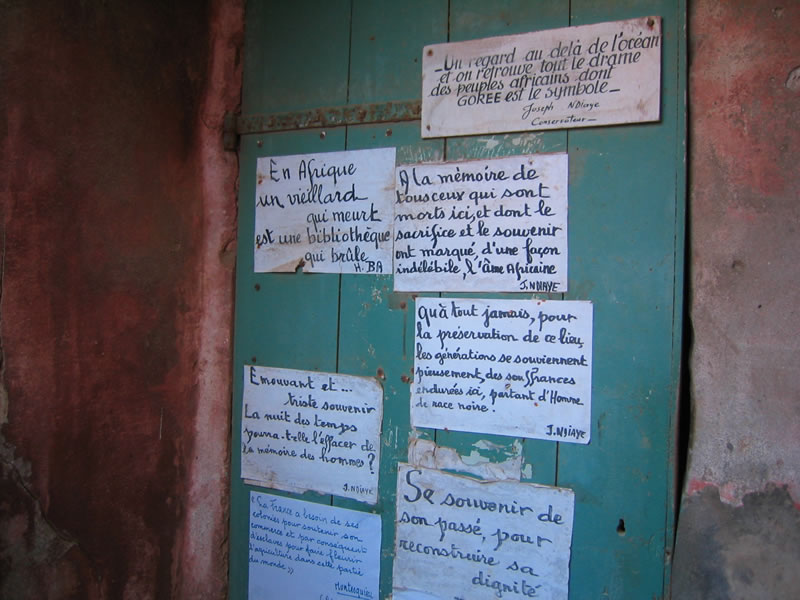 _Un regard au delà de l'océan
et on retrouve tout le drame
des peuples africains dont
GOREE est le symbole_
Joseph NDiaye
Conservateur_
En Afrique
un vieillard
qui meurt
est une bibliothèque
qui brûle
H. BA
A la mémoire de
tous ceux qui sont
morts ici, et dont le
sacrifice et le souvenir
ont marqué d'une façon
indélébile, l'âme Africaine
J. NDIAYE
Qu'à tout jamais, pour
la préservation de ce lieu,
les générations se souviennent
pieusement, des souffrances
endurées ici, par tant d'Homme
de race noire.
J. NDIAYE
Emouvant et...
triste souvenir
La nuit des temps
pourra-t-elle l'effacer de
la mémoire des hommes?
J. NDIAYE
"La France a besoin de ses
colonies pour soutenir son
commerce et par conséquent
d'esclaves pour faire fleurir
l'agriculture dans cette partie
du monde"
Montesquieu
Se souvenir de
son passé, pour
reconstruire sa
dignité